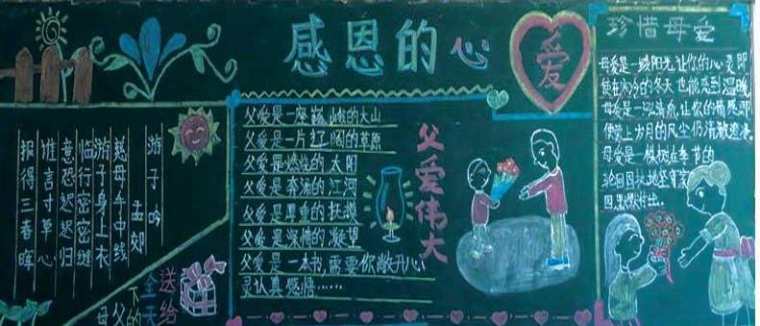 感恩的心
爱
游子吟
孟郊
慈母手中线
游子身上衣
临行密密缝
意恐迟迟归
谁言寸草心
报得三春晖
送给
全天
下的
父母
父爱伟大
父爱是一座巍峨的大山
父爱是一片 的草原
父爱是燃烧的太阳
父爱是奔涌的江河
父爱是厚重的
父爱是深情的凝望
父爱是一本书,需要你敞开心
灵认真感悟……
珍惜母爱
母爱是一缕阳光,让你的心灵即
使在寒冷的冬天也能感到温暖
母爱是一泓清泉,让你的情感即
使蒙上岁月的风尘仍清澈
母爱是一棵树,在季节的
轮回里